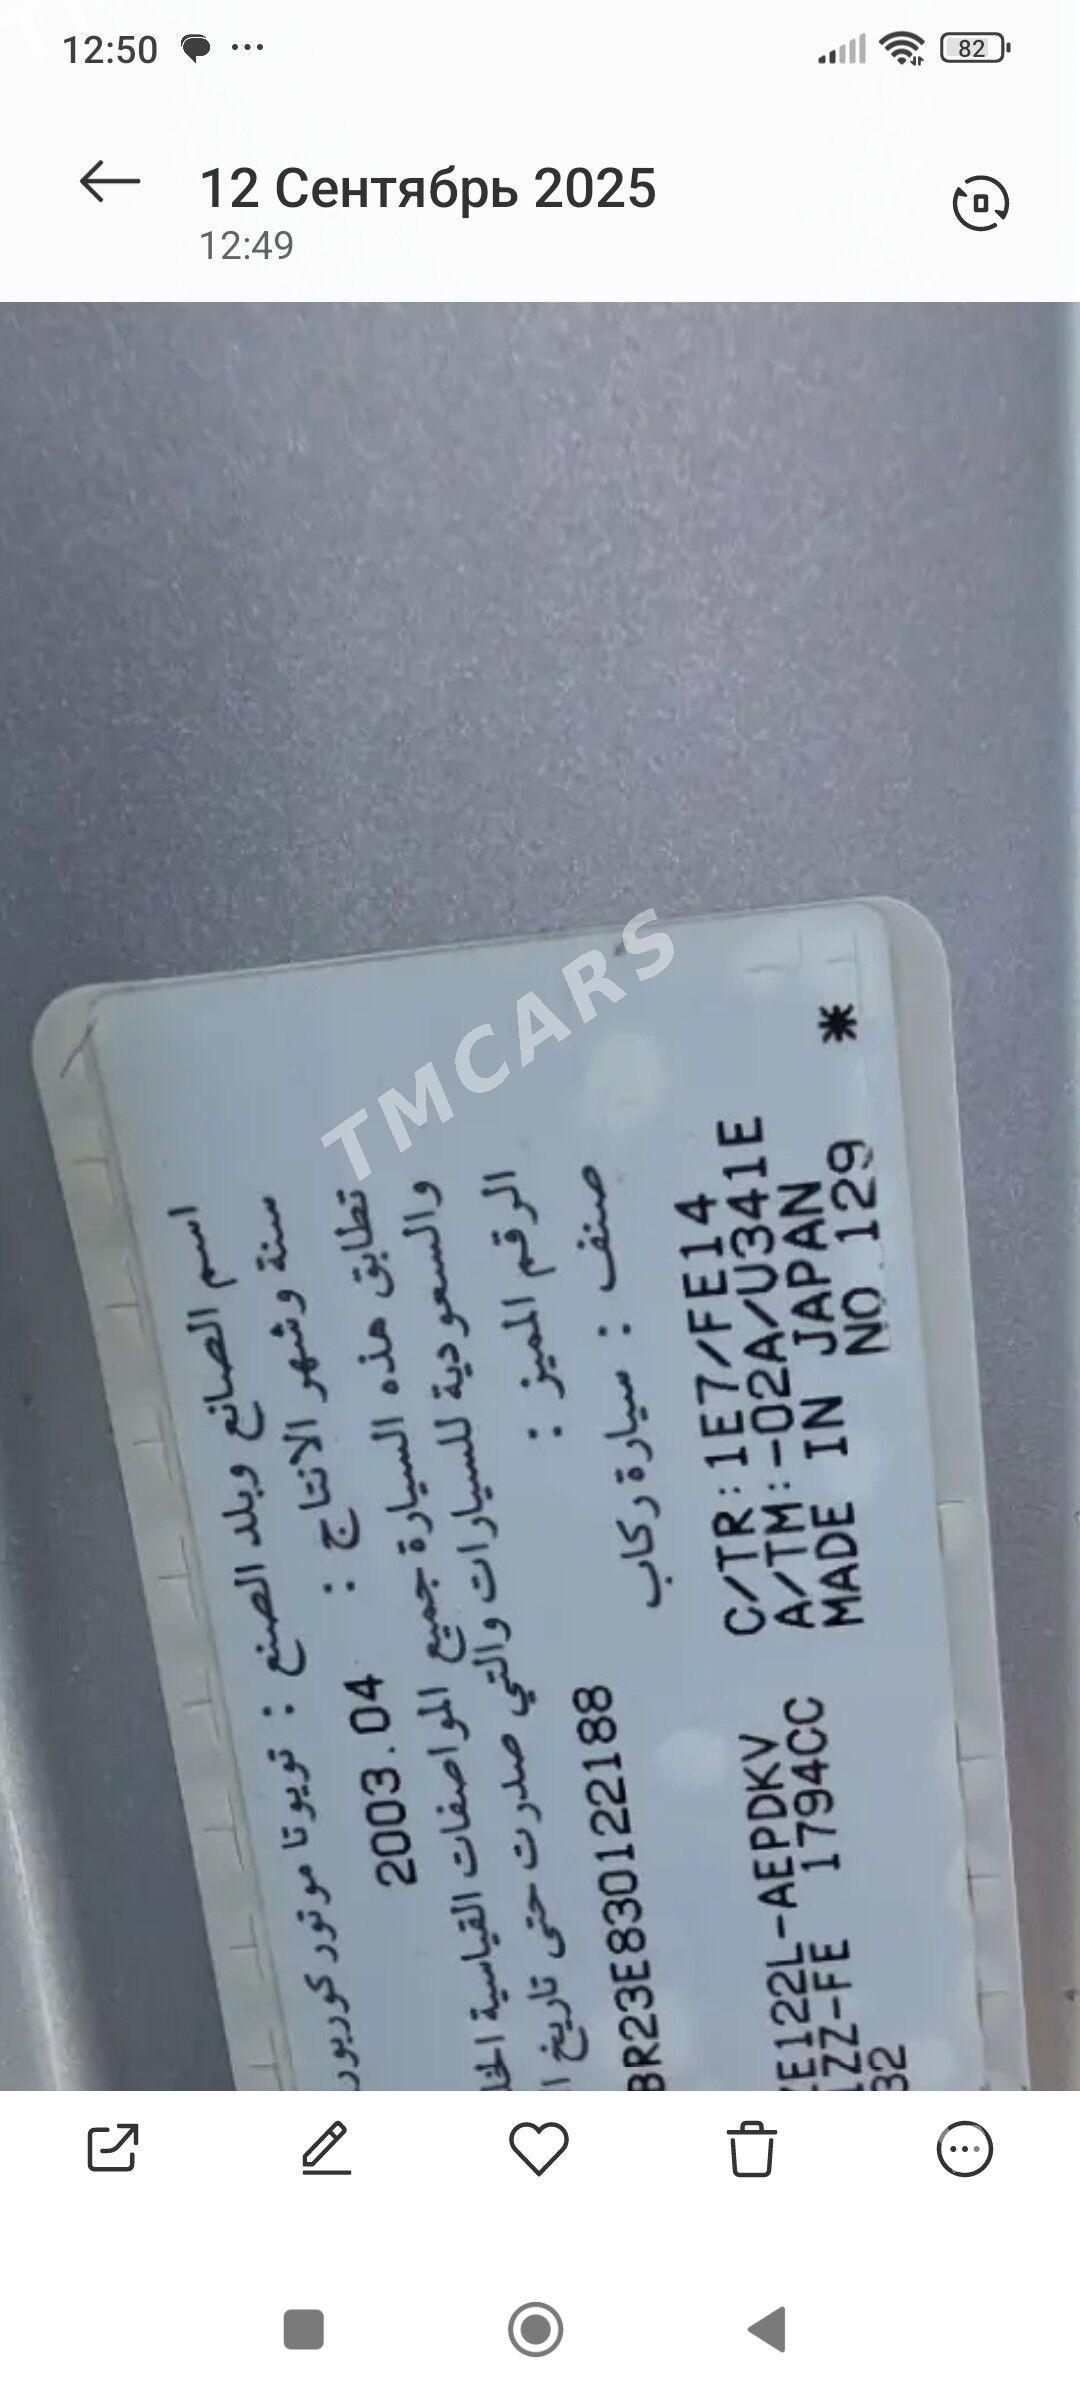 12:50
82
12 Сентябрь 2025
12:49
TMCARS
اسم الصانع وبلد الصنع : تويوتا موتور كوربور
سنة وشهر الانتاج : 2003.04
تطابق هذه السيارة جميع المواصفات القياسية
والسعودية للسيارات والتي صدرت حتى تاريخ
الرقم المميز : BR23E830122188
صنف : سيارة ركاب
C/TR:1E7/FE14
E122L-AEPDKV A/TM:-02A/U341E
ZZ-FE 1794CC MADE IN JAPAN
32 NO.129 *